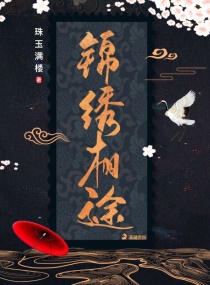 珠玉满楼
著
锦绣相途